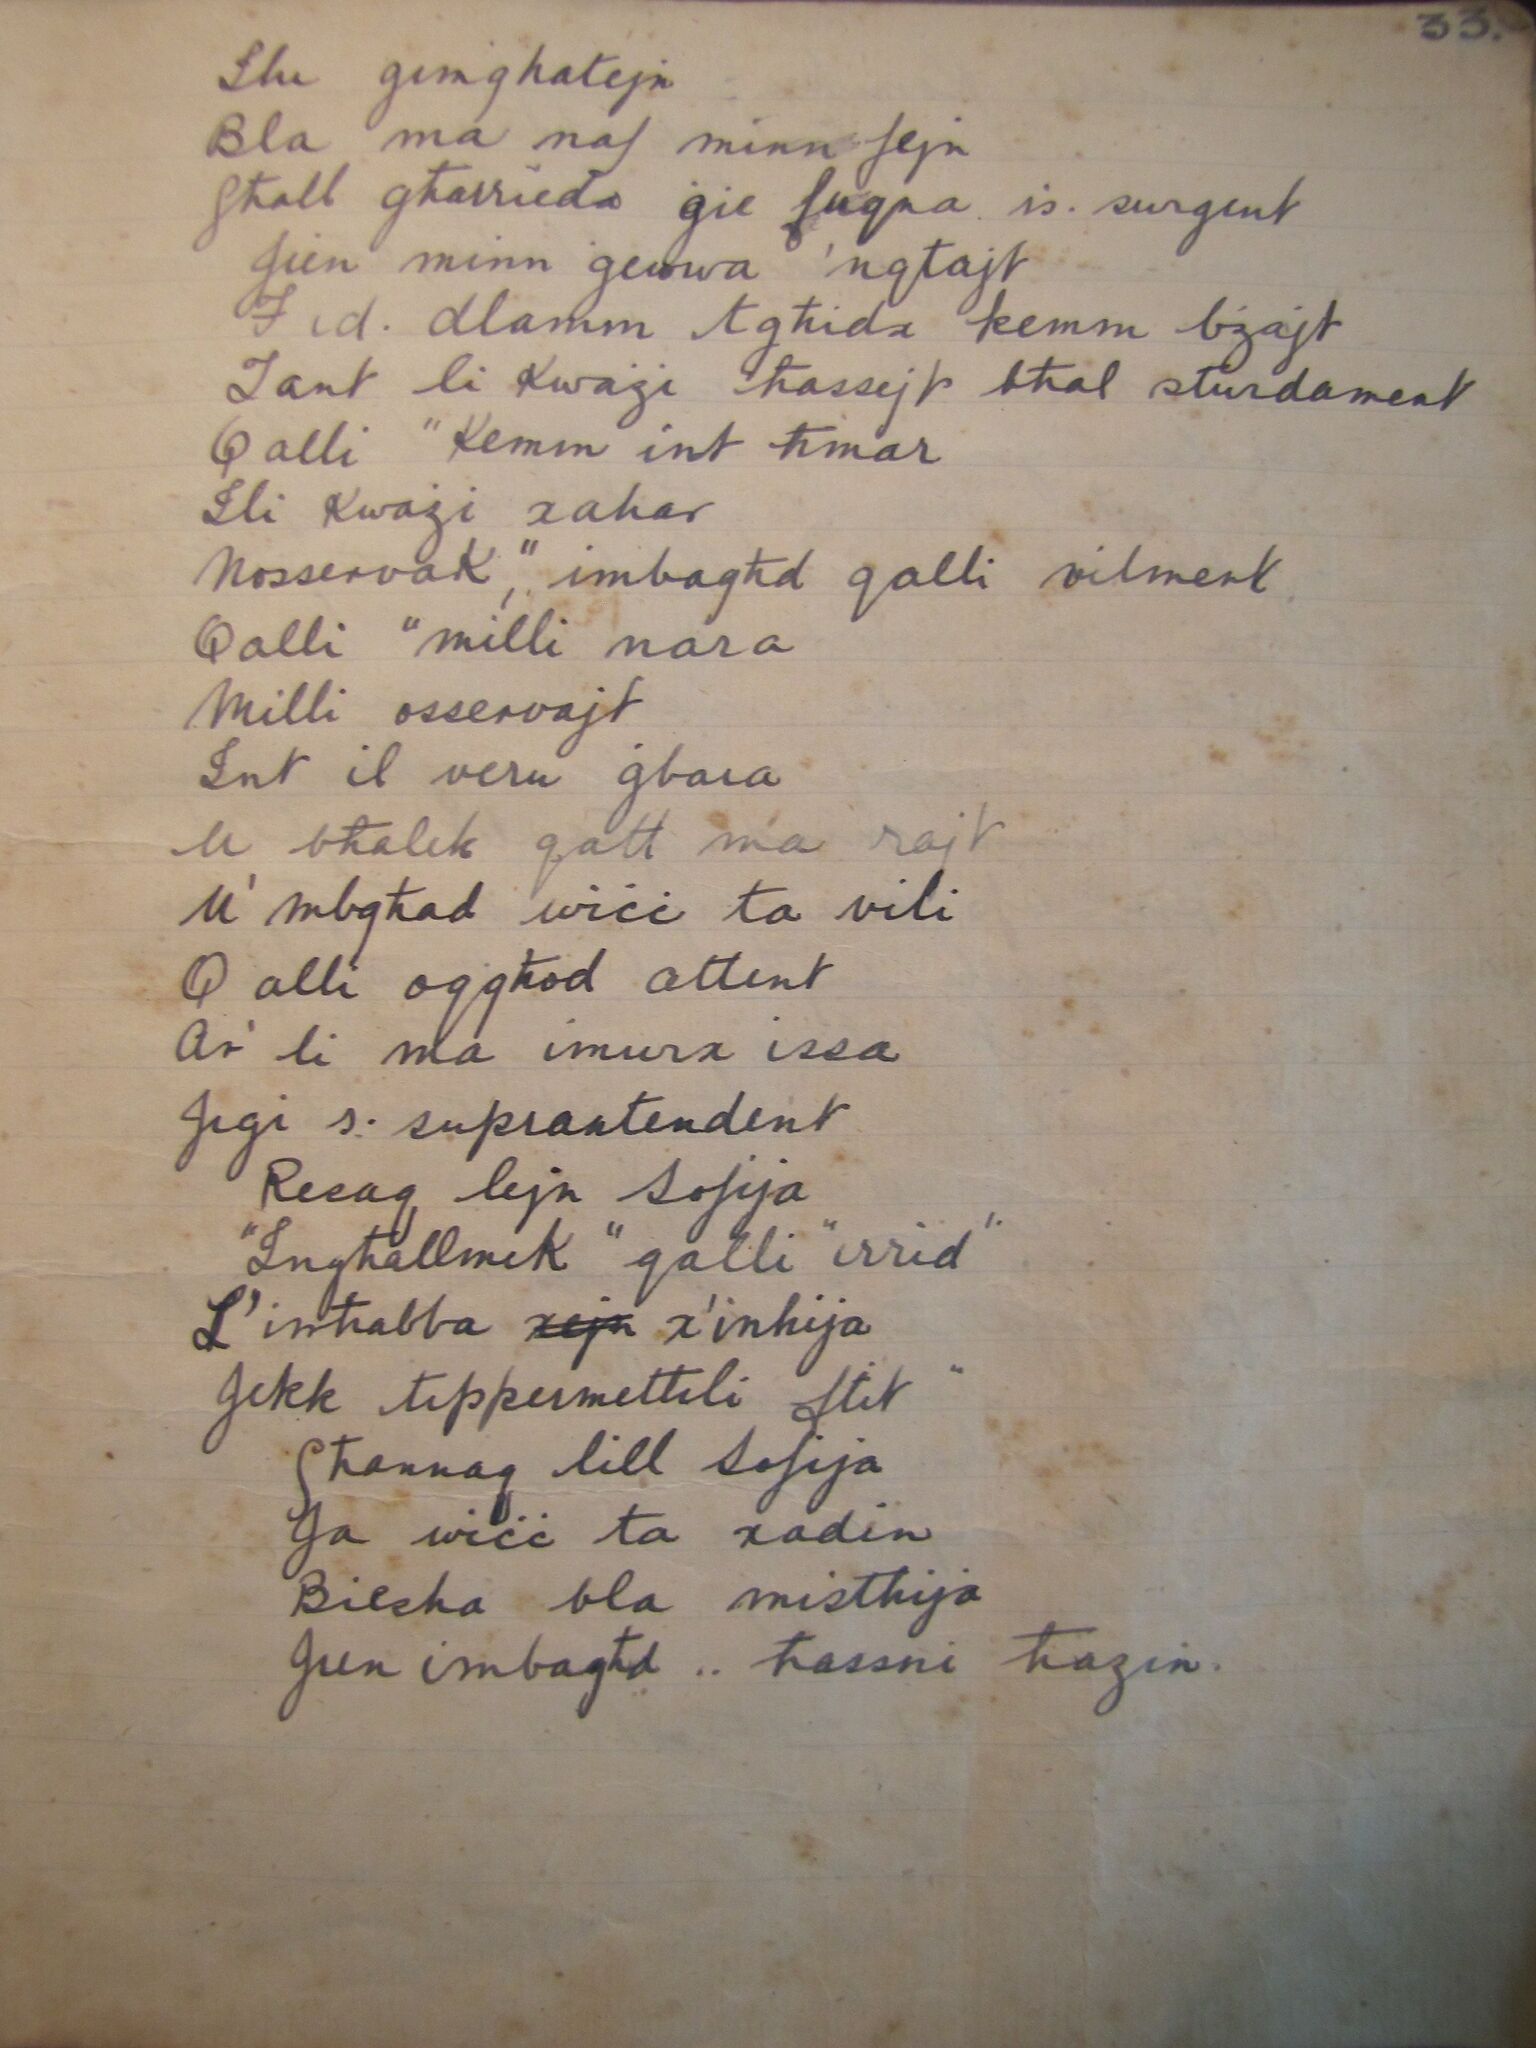 33.
Ilu ġimgħatejn
Bla ma naf minn fejn
Għall għarrieda ġie fuqna is. surgent
Jien minn ġewwa 'nqtajt
F'id. dlamm tgħidx kemm bżajt
Tant li kważi ħassejt bħal sturdament
Qalli "Kemm int ħmar
Ili kważi xahar
Nosservak," imbagħd qalli vilment
Qalli "milli nara
Milli osservajt
Int il veru ġbara
U bħalek qatt ma rajt
U' mbgħad wiċċ ta vili
Qalli oqgħod attent
Ar' li ma imurx issa
Jiġi s. suprantendent
Resaq lejn Sofija
"Ingħallmek" qalli "irrid"
L' imħabba xejn x'inhija
Jekk tippermettili ftit"
Għannaq lill Sofija
Ja wiċċ ta xadin
Biesha bla mistħija
Jien imbagħd .. ħassni ħażin.